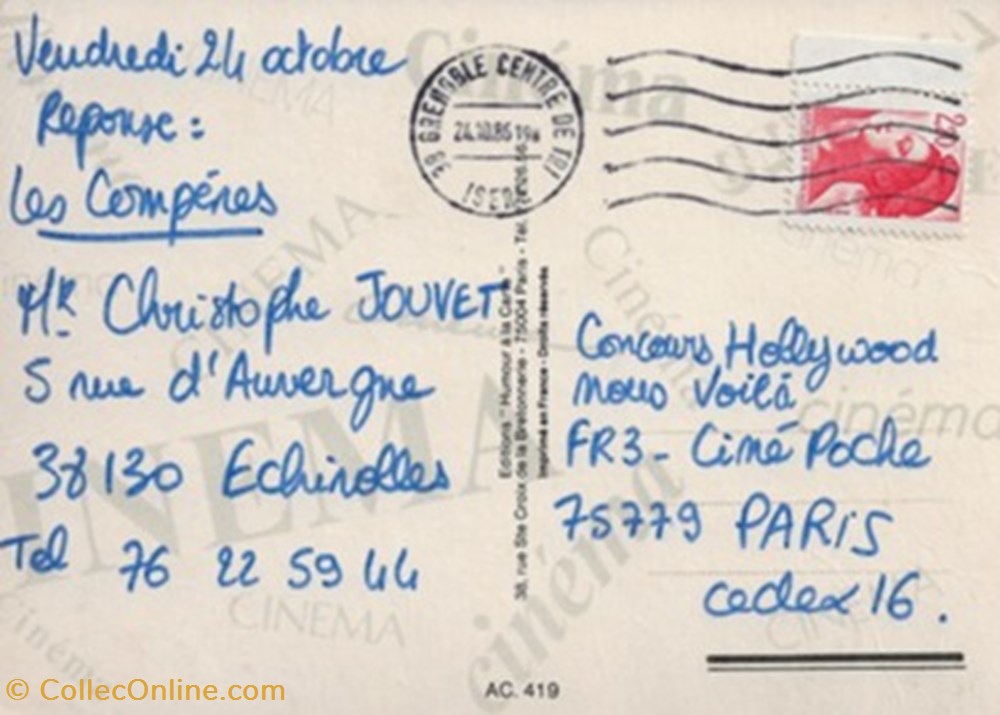 Vendredi 24 octobre
Reponse :
Les Compéres
Mr Christophe JOUVET
5 rue d'Auvergne
38130 Echirolles
Tel 76 22 59 44
38 GRENOBLE CENTRE DE TRI
24.10.86 19H
ISERE
2,20
Concours Hollywood
nous Voilà
FR3 - Ciné Poche
75779 PARIS
cedex 16.
Editions "Humour à la Carte"
38, rue Ste Croix de la Bretonnerie - 75004 Paris - Tél.
Imprimé en France - Droits réservés
Cinéma
CINEMA
CINEMA
Cinéma
cinéma
cinéma
CINEMA
cinéma
CINEMA
Cinéma
AC. 419
© CollecOnline.com